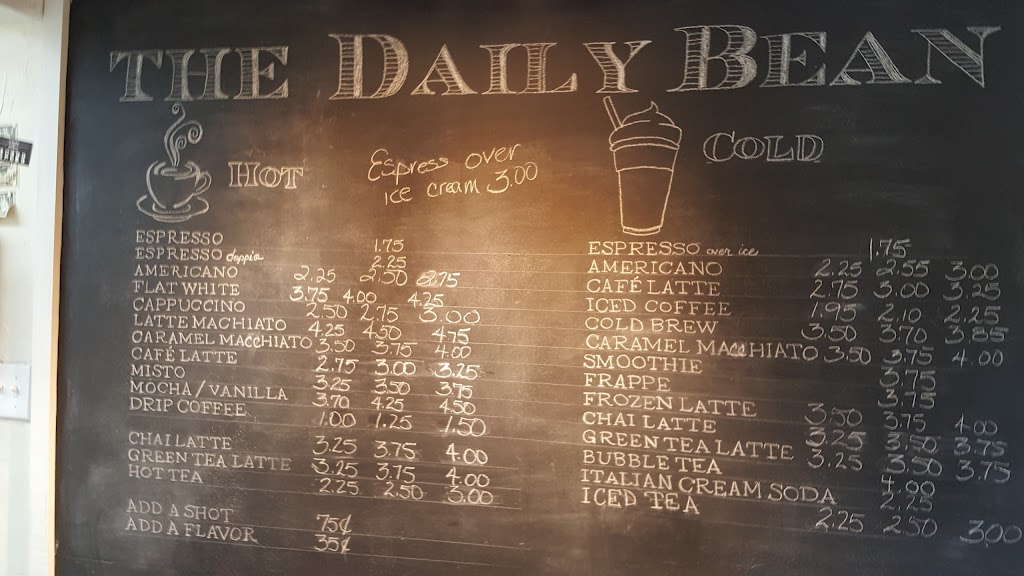 THE DAILY BEAN
HOT
Espress over
ice cream 3.00
ESPRESSO 1.75
ESPRESSO doppia 2.25
AMERICANO 2.25 2.50 2.75
FLAT WHITE 3.75 4.00 4.25
CAPPUCCINO 2.50 2.75 3.00
LATTE MACHIATO 4.25 4.50 4.75
CARAMEL MACCHIATO 3.50 3.75 4.00
CAFÉ LATTE 2.75 3.00 3.25
MISTO 3.25 3.50 3.75
MOCHA/VANILLA 3.70 4.25 4.50
DRIP COFFEE 1.00 1.25 1.50
CHAI LATTE 3.25 3.75 4.00
GREEN TEA LATTE 3.25 3.75 4.00
HOT TEA 2.25 2.50 3.00
ADD A SHOT 75¢
ADD A FLAVOR 35¢
COLD
ESPRESSO over ice 1.75
AMERICANO 2.25 2.55 3.00
CAFÉ LATTE 2.75 3.00 3.25
ICED COFFEE 1.95 2.10 2.25
COLD BREW 3.50 3.70 3.85
CARAMEL MACCHIATO 3.50 3.75 4.00
SMOOTHIE 3.75
FRAPPE 3.75
FROZEN LATTE 3.50 3.75 4.00
CHAI LATTE 3.25 3.50 3.75
GREEN TEA LATTE 3.25 3.50 3.75
BUBBLE TEA 4.00
ITALIAN CREAM SODA 2.25
ICED TEA 2.25 2.50 3.00